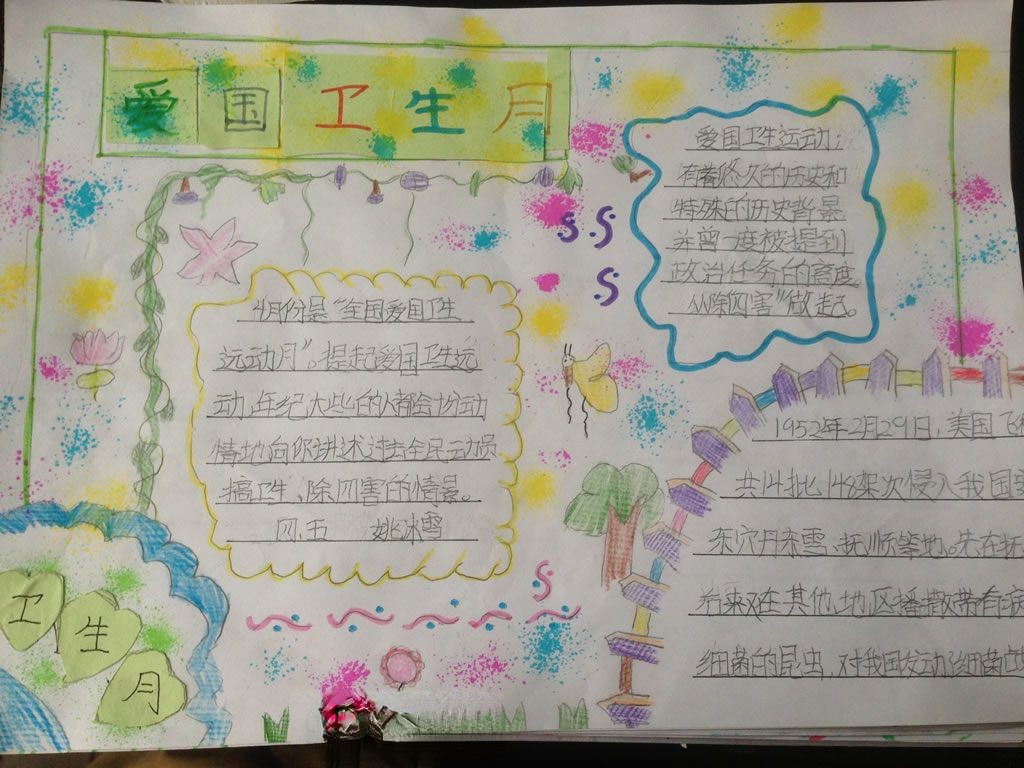 爱国卫生月
爱国卫生运动:
有着悠久的历史和
特殊的历史背景
并曾一度被提到
政治任务的高度
从除四害"做起。
4月份是"全国爱国卫生
运动月"。提起爱国卫生运
动,年纪大些的人都会
情地向你讲述过去全民动员
搞卫生、除四害的情景。
四.五 姚冰雪
1952年2月29日,美国飞
共14批148架次侵入我国
东、抚顺等地。先在抚
在其他地区播散带有病
细菌的昆虫,对我国发动细菌
卫
生
月